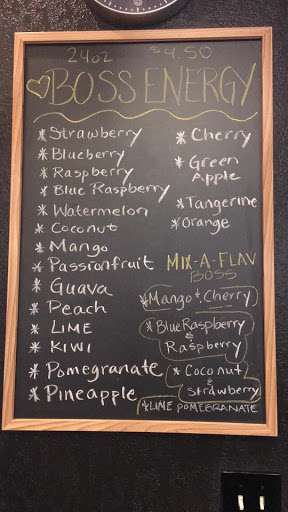 24oz $4.50
BOSS ENERGY
* Strawberry
* Blueberry
* Raspberry
* Blue Raspberry
* Watermelon
* Coconut
* Mango
* Passionfruit
* Guava
* Peach
* LIME
* KIWI
* Pomegranate
* Pineapple
* Cherry
* Green
Apple
* Tangerine
* Orange
MIX-A-FLAV
BOSS
* Mango + Cherry
* Blue Raspberry
&
Raspberry
* Coconut
&
Strawberry
* LIME POMEGRANATE